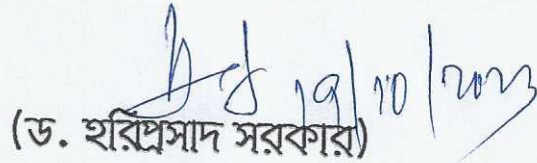 19/10/2023
(ড. হরিপ্রসাদ সরকার)